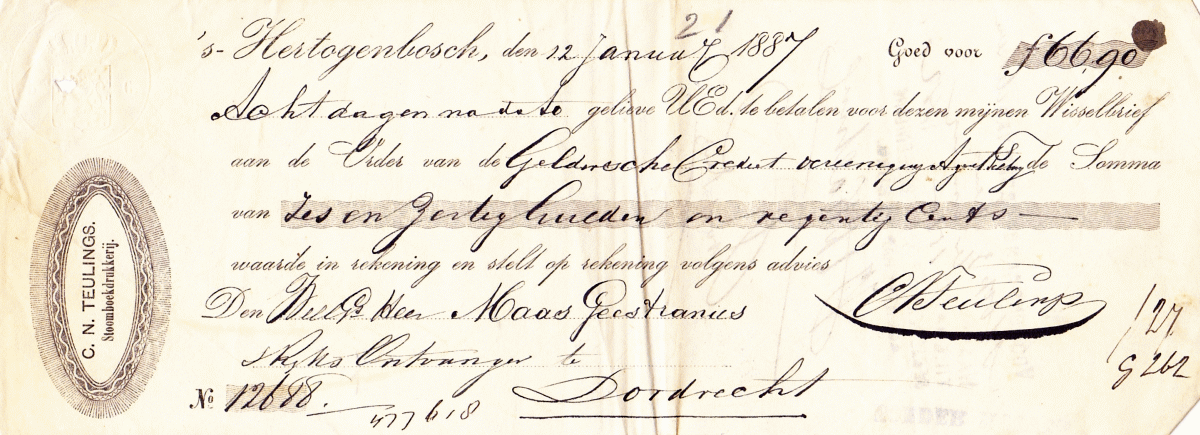 21
's-Hertogenbosch, den 12 Januarij 1887 Goed voor f 66,90
Acht dagen na dato gelieve UEd. te betalen voor dezen mijnen Wisselbrief
aan de Order van de Geldersche Crediet vereeniging Agentschap de Somma
van Zes en Zestig Gulden en negentig Cents
waarde in rekening en stelt op rekening volgens advies
Den WelEd Heer Maas Geesteranus
s Rijks Ontvanger te
Dordrecht
CNTeulings
No 12688.
477618
127
9262
C. N. TEULINGS.
Stoomboekdrukkerij.